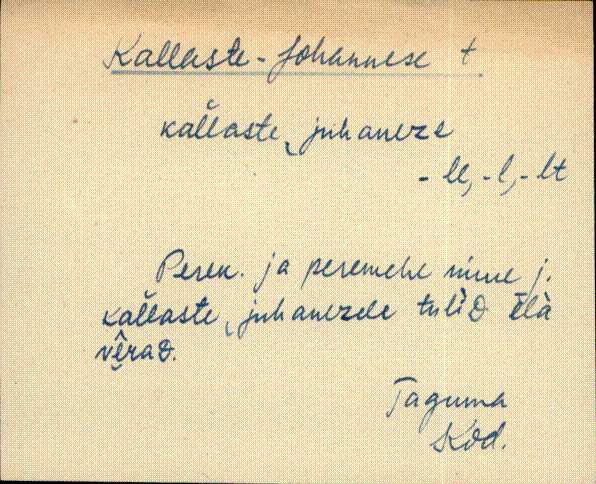 Kallaste-Johannese t.
kal̆l̆aste‿juhaneze
-le, -l, -lt
Peren. ja peremehe nime j.
kal̆l̆aste‿juhanezele tulìD ēlà
vɛ̭̂raD.
Taguma
Kod.